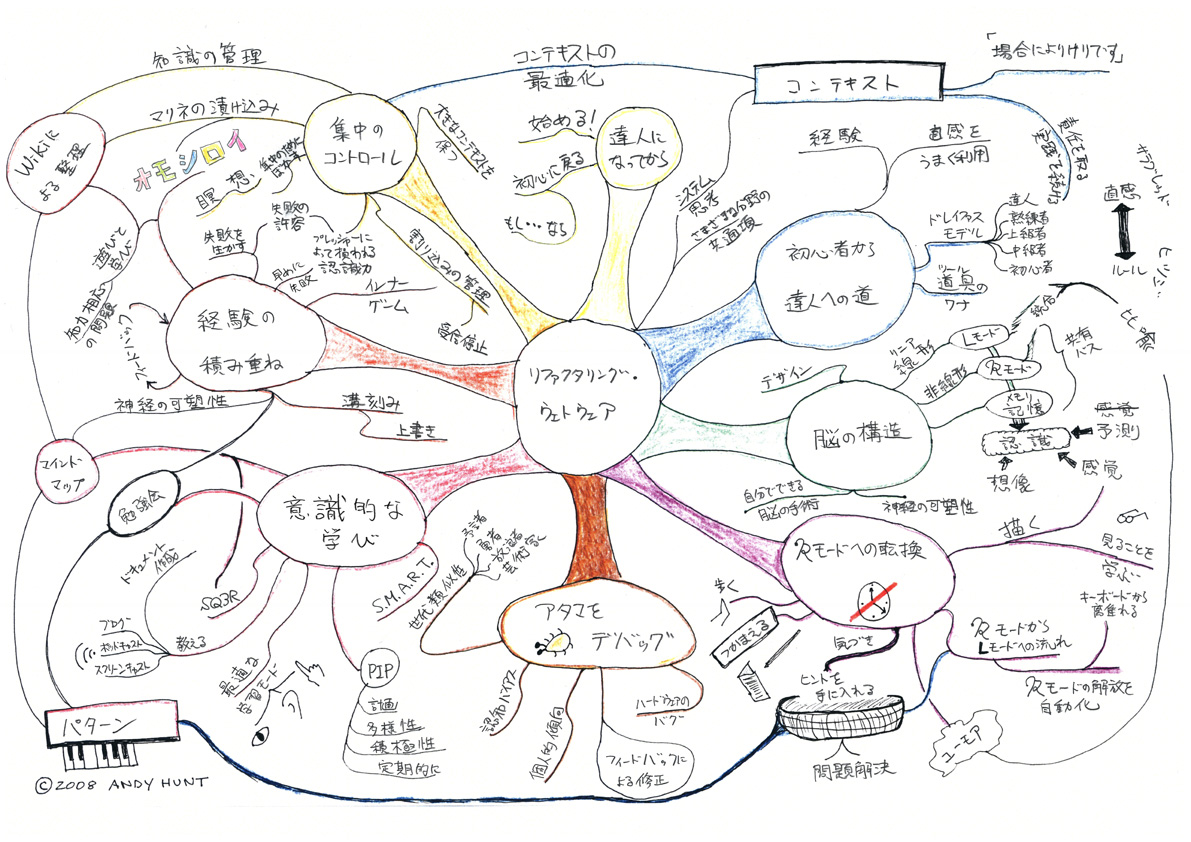 知識の管理
コンテキストの
最適化
コンテキスト
「場合によりけりです」
Wikiに
よる整理
マリネの漬け込み
オモシロイ
集中の
コントロール
大きなコンテキストを
保つ
始める!
達人に
なってから
初心に戻る
もし…なら
システム
思考
さまざまな分野の
共通項
経験
直感を
うまく利用
責任を取る
実践を続ける
初心者から
達人への道
ドレイファス
モデル
達人
熟練者
上級者
中級者
初心者
直感
ルール
ツール
道具の
ワナ
瞑想
失敗の
許容
失敗を
生かす
早めに
失敗
プレッシャーに
よって損われる
認識力
割り込みの管理
受信停止
遊びと
学び
フィードバック
経験の
積み重ね
インナー
ゲーム
神経の可塑性
溝刻み
上書き
リファクタリング・
ウェットウェア
デザイン
脳の構造
リニア
線形
非線形
Lモード
Rモード
メモリ
記憶
統合
共有
バス
比喩
認識
感覚
予測
感覚
想像
自分でできる
脳の手術
神経の可塑性
マインド・
マップ
勉強会
意識的な
学び
ドキュメント
作成
SQ3R
教える
ブログ
ポッドキャスト
スクリーンキャスト
最適な
学習モード
S.M.A.R.T.
PIP
計画
多様性
積極性
定期的に
世代類似性
予言者
放浪者
英雄
芸術家
アタマを
デバッグ
認知バイアス
個人的傾向
ハードウェアの
バグ
フィードバックに
よる修正
Rモードへの転換
描く
見ることを
学ぶ
キーボードから
離れる
Rモードから
Lモードへの流れ
Rモードの解放を
自動化
ユーモア
歩く
つかまえる
気づき
ヒントを
手に入れる
問題解決
パターン
©2008 ANDY HUNT